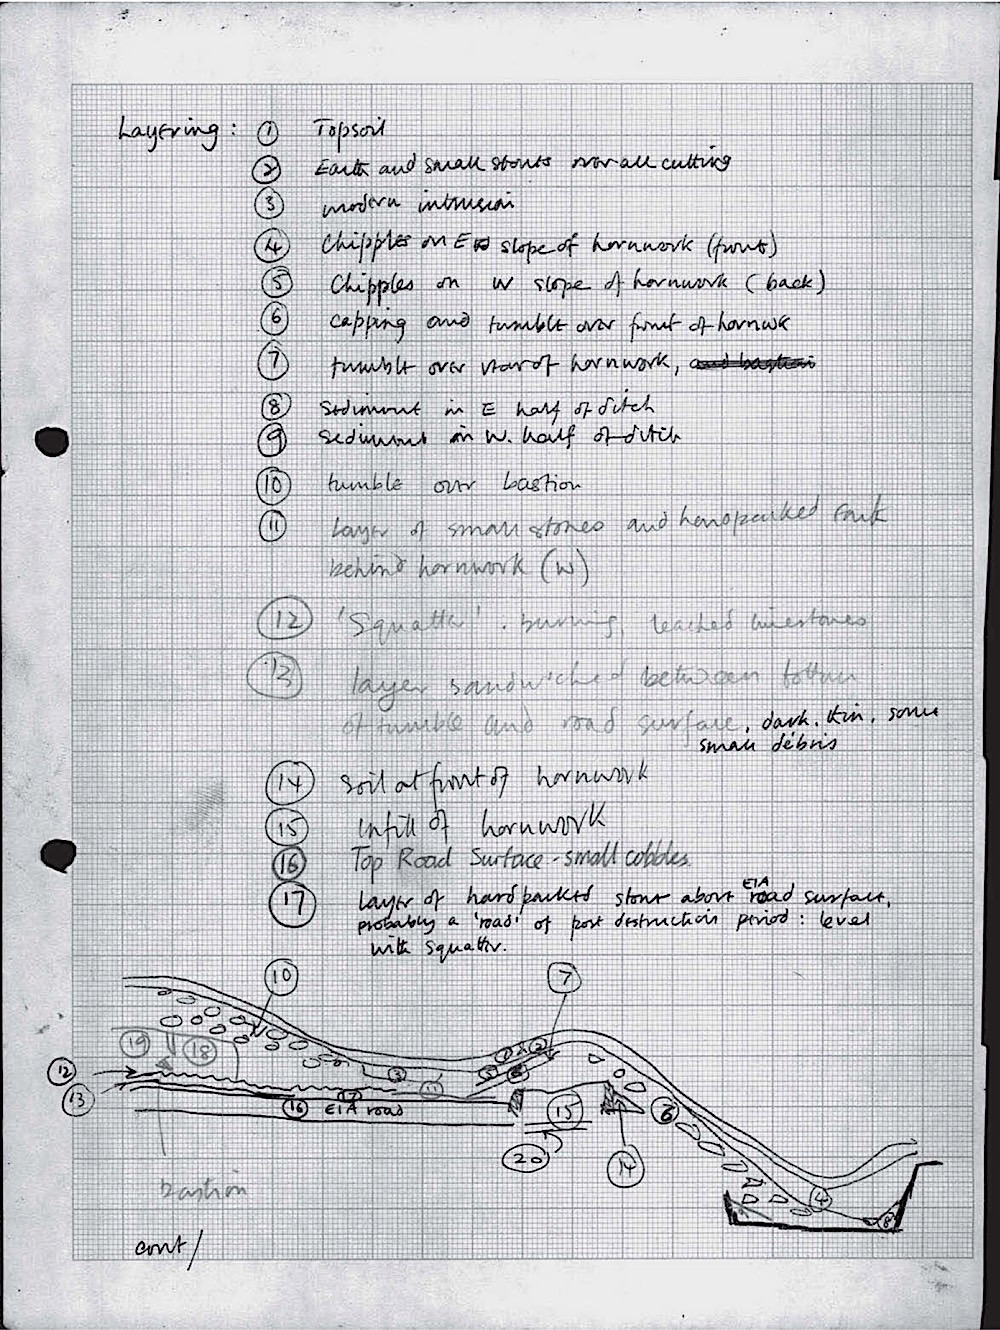 Layering: ① Topsoil
② Earth and small stones over all cutting
③ modern intrusion
④ Chipples on E slope of hornwork (front)
⑤ Chipples on W slope of hornwork (back)
⑥ capping and tumble over front of hornwk
⑦ tumble over rear of hornwork, and bastion
⑧ Sediment in E half of ditch
⑨ Sediment in W. half of ditch
⑩ tumble over bastion
⑪ layer of small stones and hardpacked Earth
behind hornwork (W)
⑫ 'Squatter'. burning, leached limestones
⑬ layer sandwiched between bottom
of tumble and road surface, dark, thin, some
small débris
⑭ Soil at front of hornwork
⑮ Infill of hornwork
⑯ Top Road Surface - small cobbles.
⑰ Layer of hardpacked stones above EIA road surface,
probably a 'road' of post destruction period: level
with squatter.
⑩ ⑦
⑲ ⑱ ① ②
⑫ ③ ⑤
⑬ ⑰
⑯ EIA road ⑮ ⑥
⑳ ⑭
bastion ④ ⑧
cont/